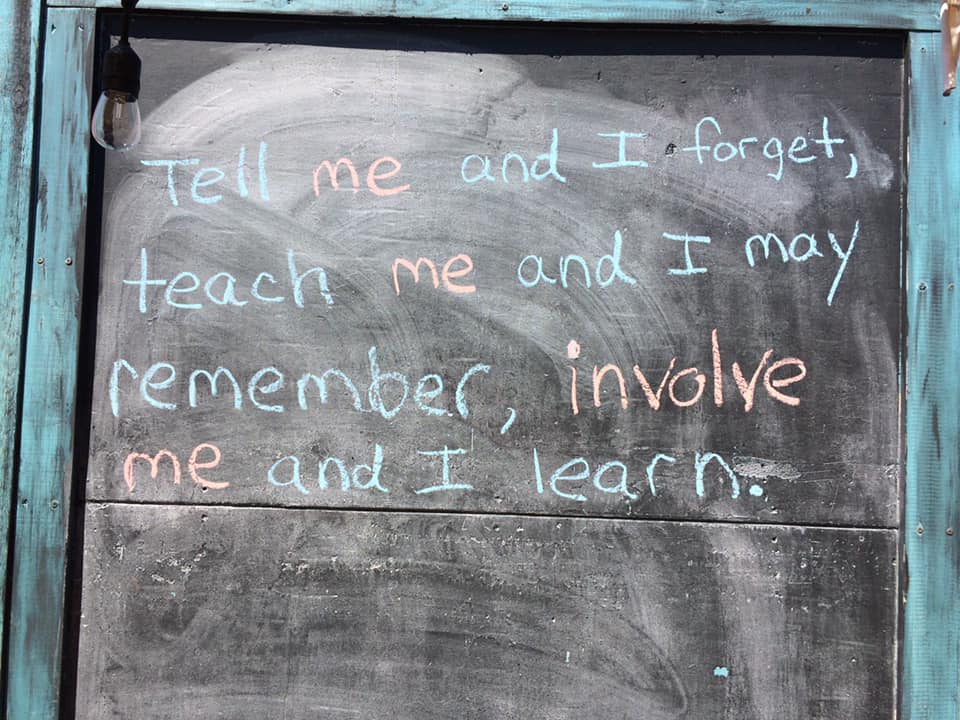 Tell me and I forget,
teach me and I may
remember, involve
me and I learn.